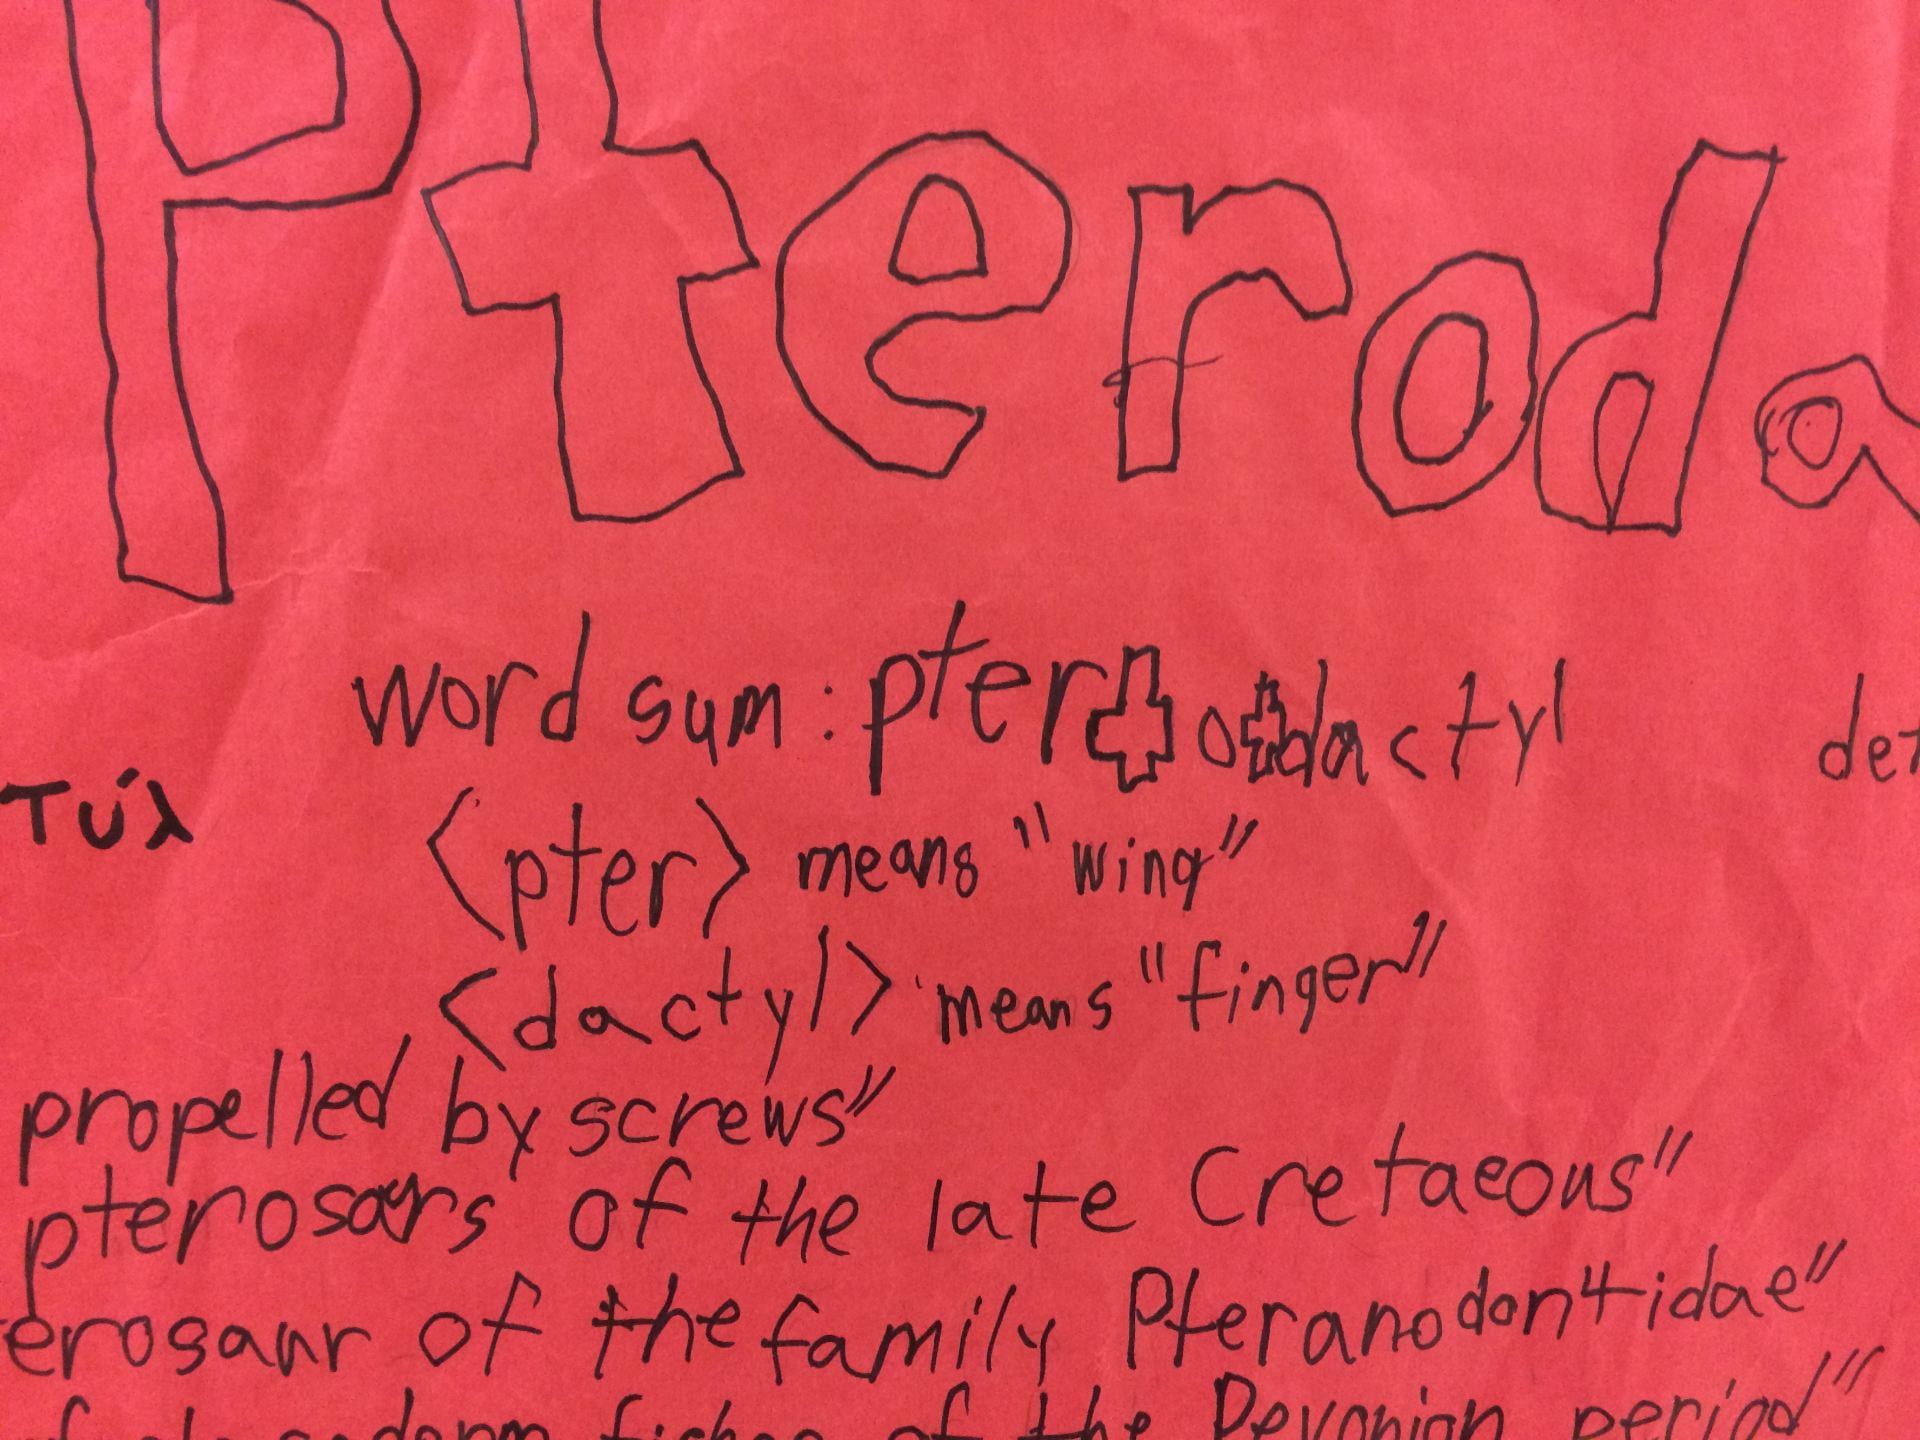 Pteroda
word sum: pter + o + dactyl
det
τύλ
<pter> means "wing"
<dactyl> means "finger"
propelled by screws"
pterosaurs of the late Cretaeous"
erosaur of the family Pteranodontidae"
fishes of the Devonian period"